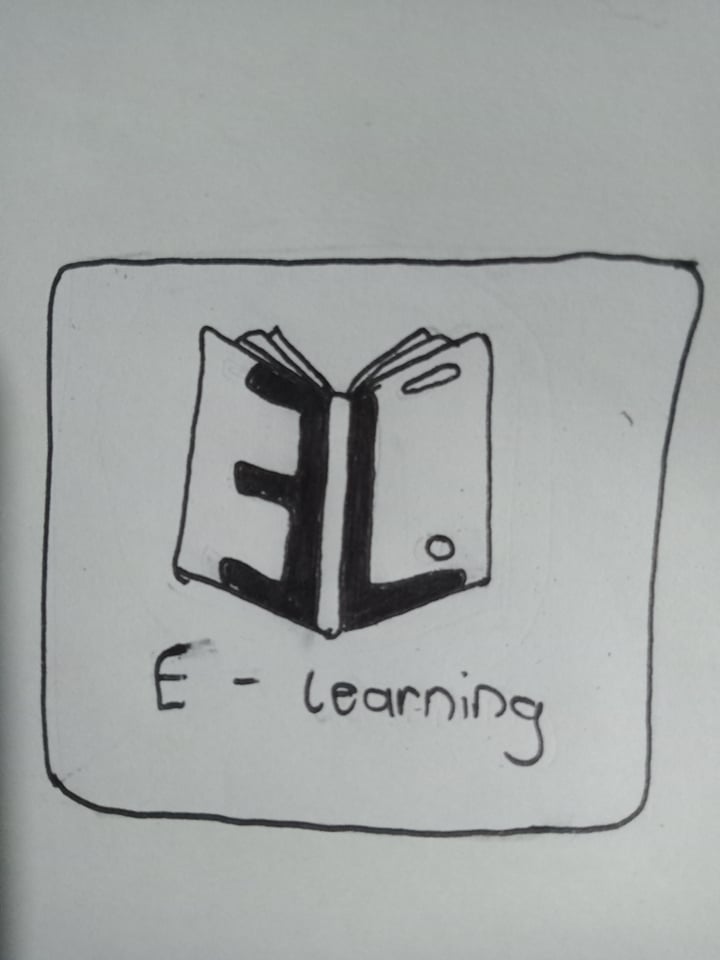 EL
E - learning